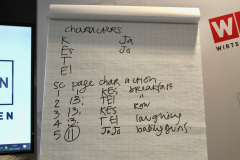 CHARACTERS
K Ja
Es Jo
T
El
sc page char action
1 1; KEs breakfast
2 13; TEl "
3 13; KEs row
4 3; TEl laughing
5 11 JaJo
W
WIRTS
EN